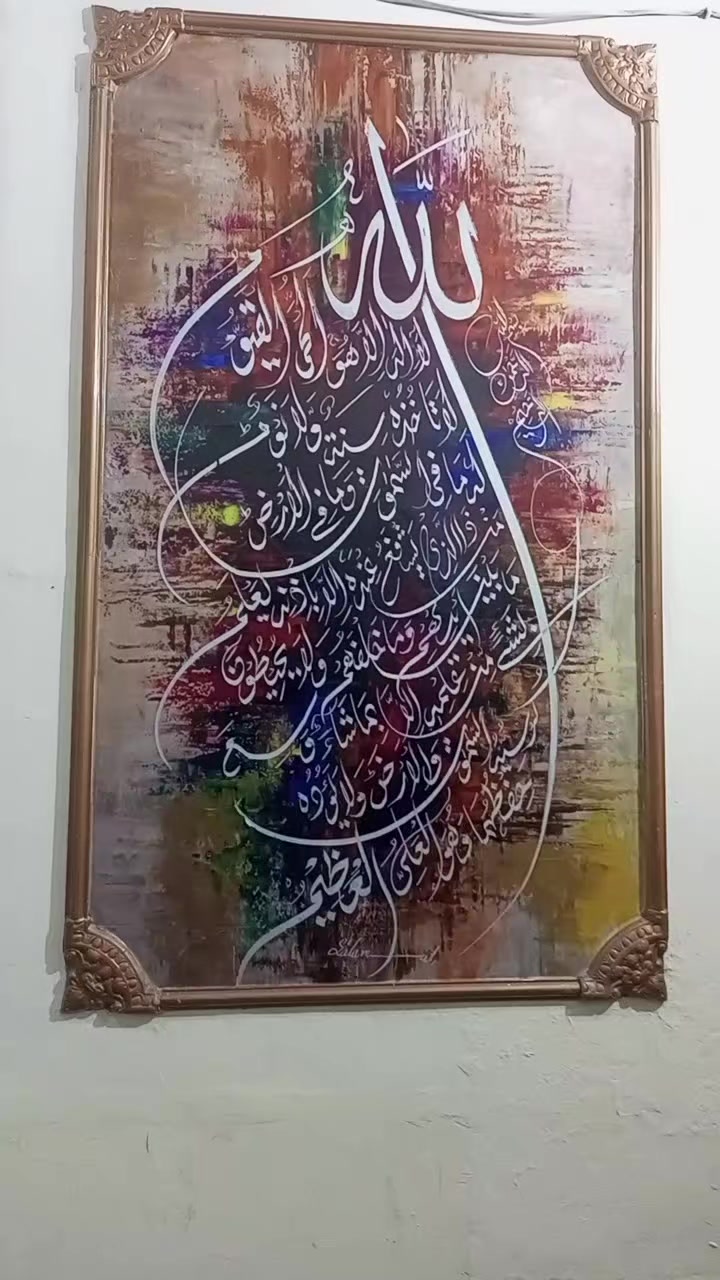 بسم الله الرحمن الرحيم
اللّٰه
لا اله الا هو الحي القيوم
لا تاخذه سنة ولا نوم
له ما في السموت وما في الارض
من ذا الذي يشفع عنده الا باذنه يعلم
ما بين ايديهم وما خلفهم ولا يحيطون
بشيء من علمه الا بما شاء وسع
كرسيه السموت والارض ولا يؤده
حفظهما وهو العلي
العظيم